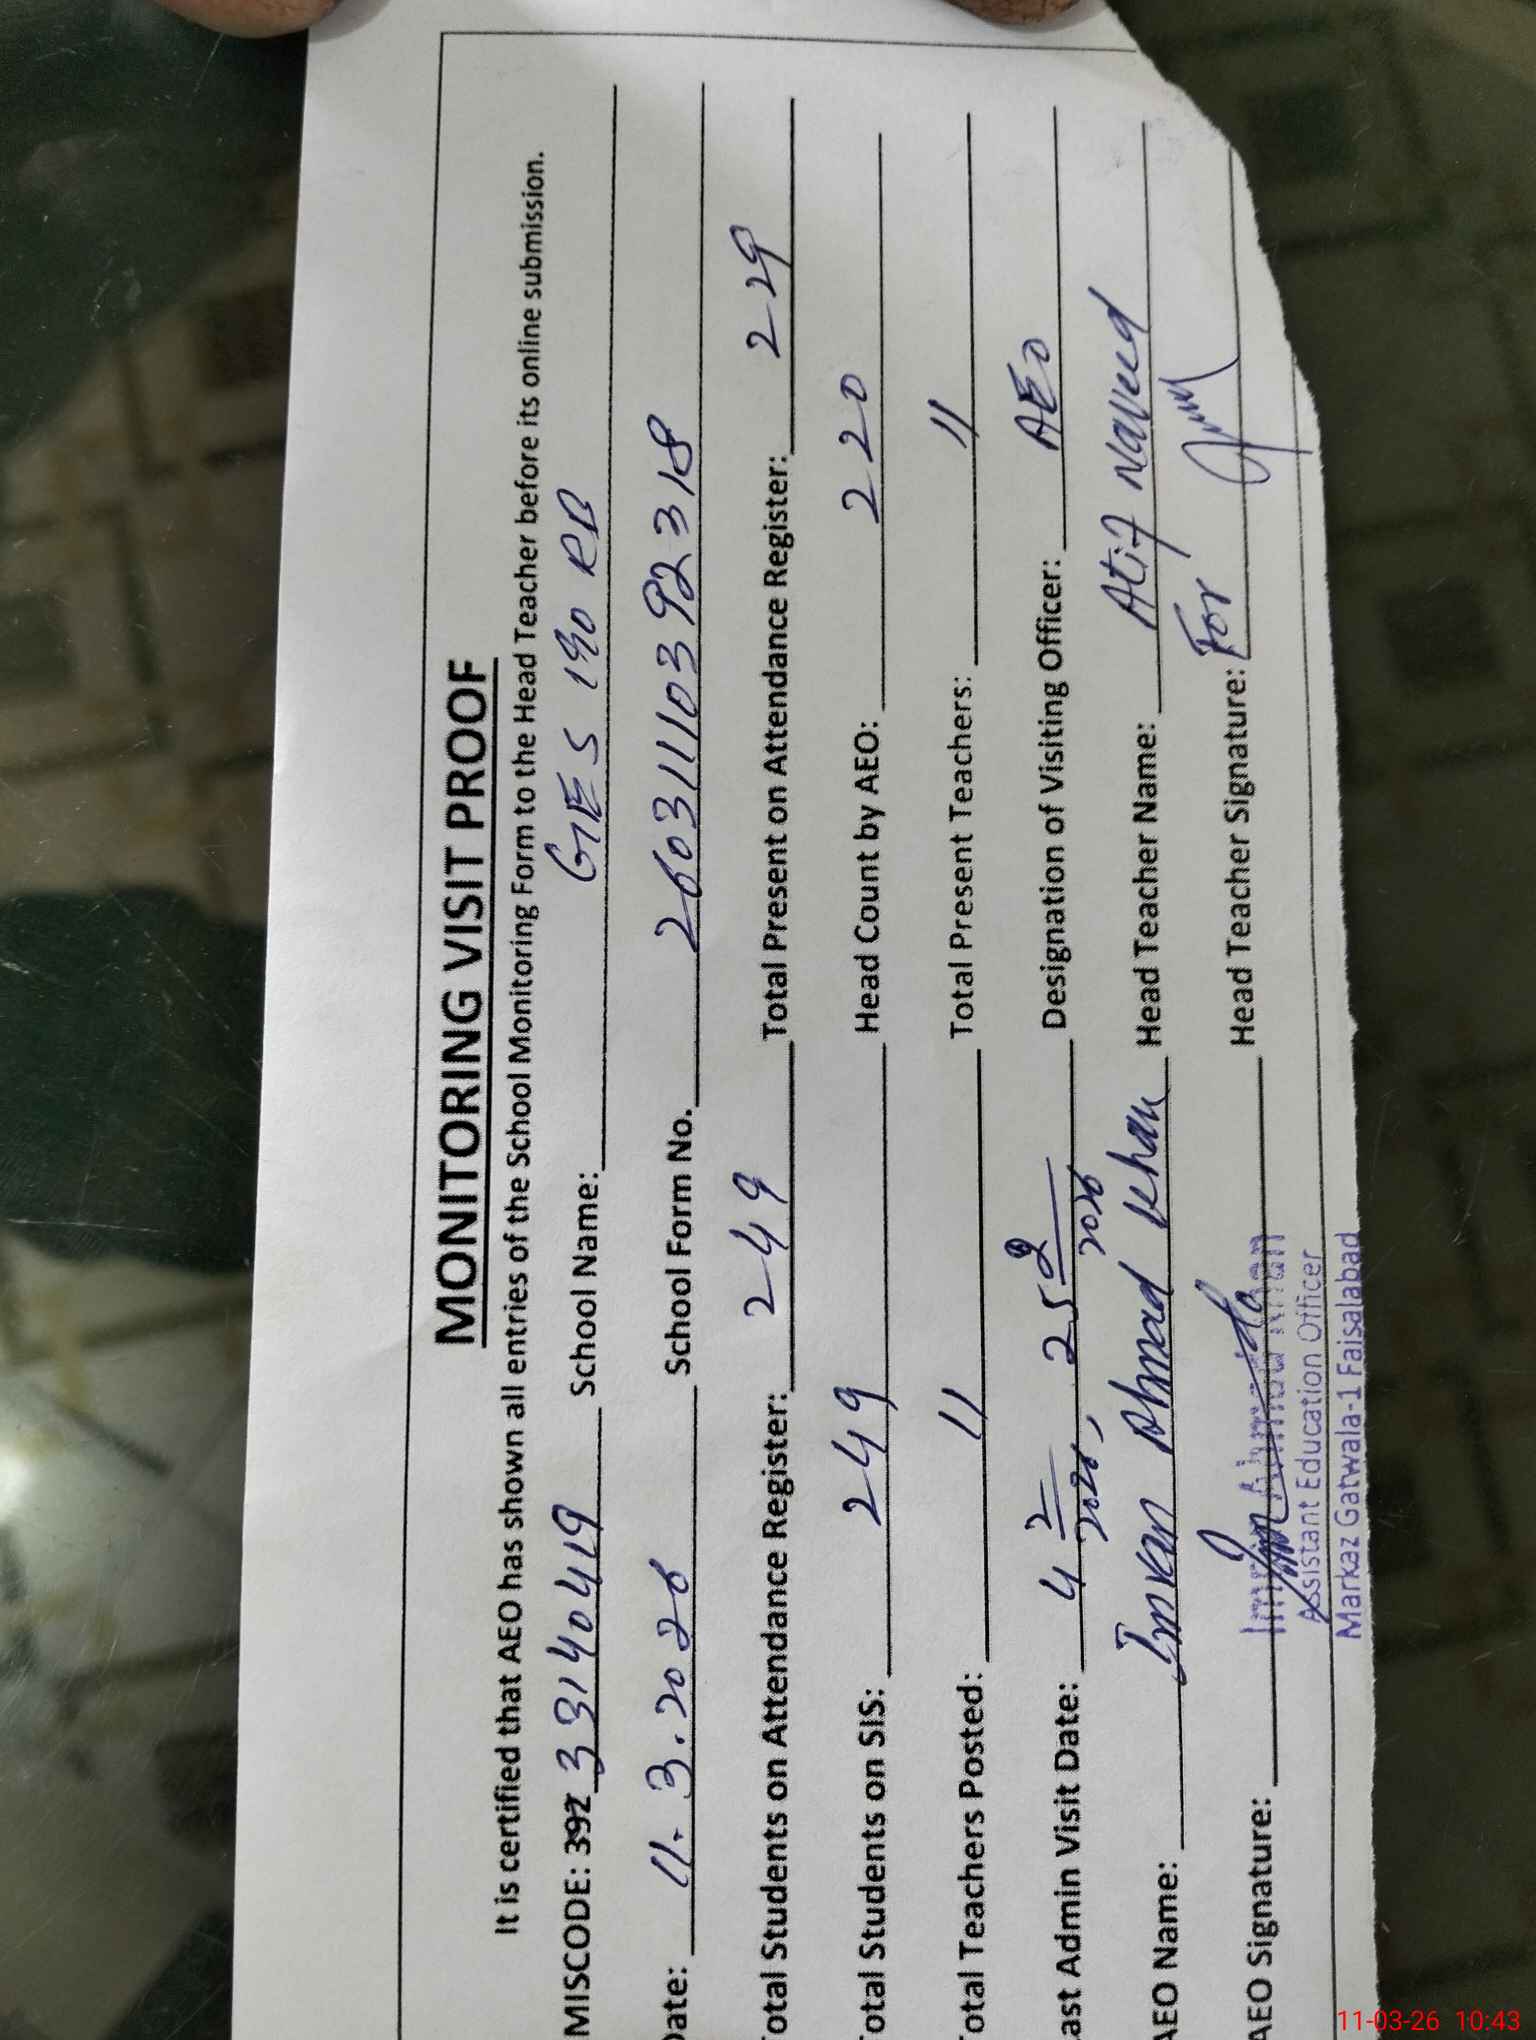 MONITORING VISIT PROOF
It is certified that AEO has shown all entries of the School Monitoring Form to the Head Teacher before its online submission.
MISCODE: 392 3314049 School Name: GES 190 RB
Date: 11.3.2026 School Form No. 26031110392318
Total Students on Attendance Register: 249 Total Present on Attendance Register: 229
Total Students on SIS: 249 Head Count by AEO: 220
Total Teachers Posted: 11 Total Present Teachers: 11
Last Admin Visit Date: 4 2/2026, 25 2/2026 Designation of Visiting Officer: AEO
AEO Name: Imran Ahmad Khan Head Teacher Name: Atif Naveed
AEO Signature: Head Teacher Signature: For
Imran Ahmad Khan
Assistant Education Officer
Markaz Gatwala-1 Faisalabad
11-03-26 10:43